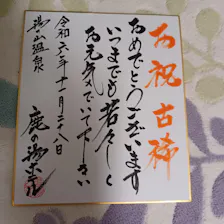 お祝 古稀
おめでとうございます
いつまでも若々しく
お元気でいて下さい
令和六年十一月二十八日
湯の山温泉
鹿の湯ホテル